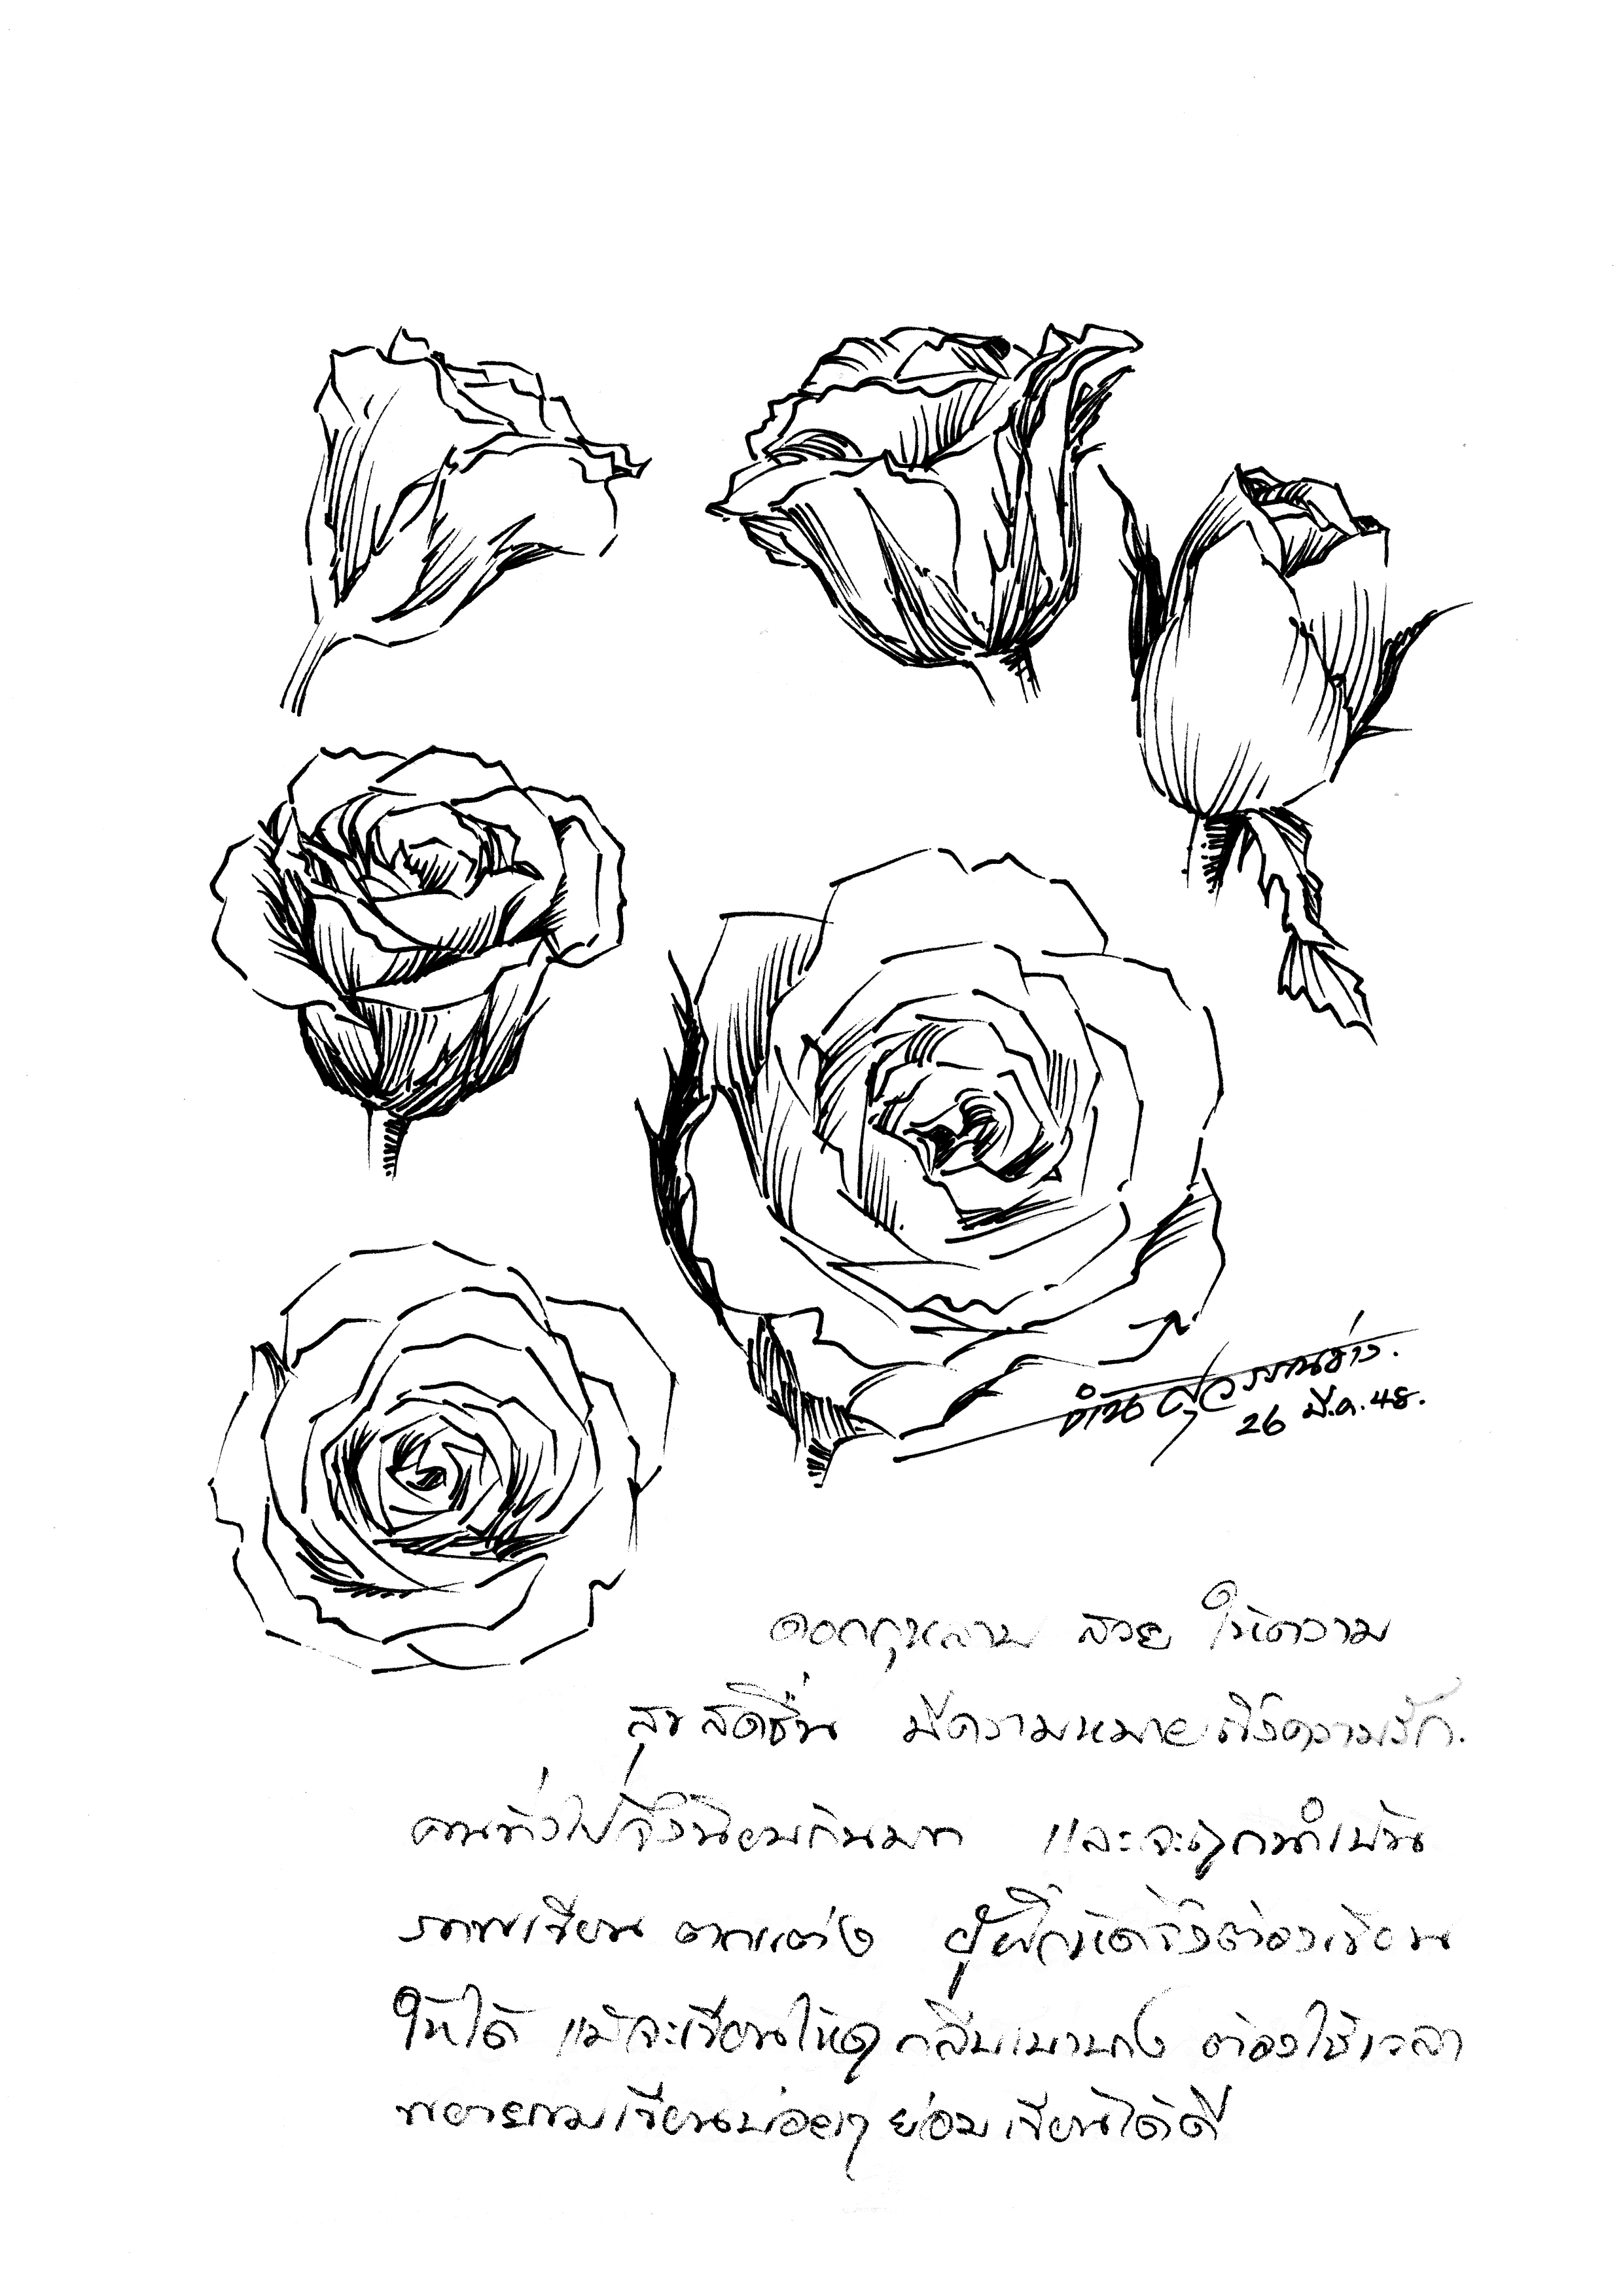 สุวรรณช่าง.
26 มี.ค. 48.
ดอกกุหลาบ สวย ให้ความ
สุข สดชื่น มีความหมายถึงความรัก.
คนทั่วไปจึงนิยมกันมาก และจะถูกนำเป็น
ภาพเขียน ตกแต่ง ผู้ฝึกหัดจึงต้องเขียน
ให้ได้ แม้จะเขียนให้ดู กลีบเบาบาง ต้องใช้เวลา
พยายามเขียนบ่อยๆ ย่อมเขียนได้ดี